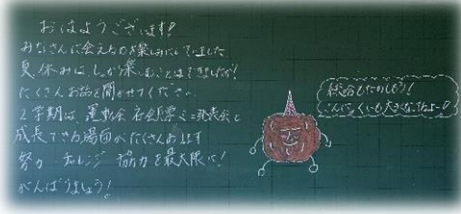 おはようございます!
みなさんに会えるのを楽しみにしていました。
夏休みは、しっかり楽しむことはできましたか?
たくさんお話を聞かせてください。
2学期は、運動会、社会見学、発表会と
成長できる場面がたくさんあります
努力 チャレンジ 協力を最大限に!
がんばりましょう!
総合もたのしもう!
さんにくいも大きくなったよー!!